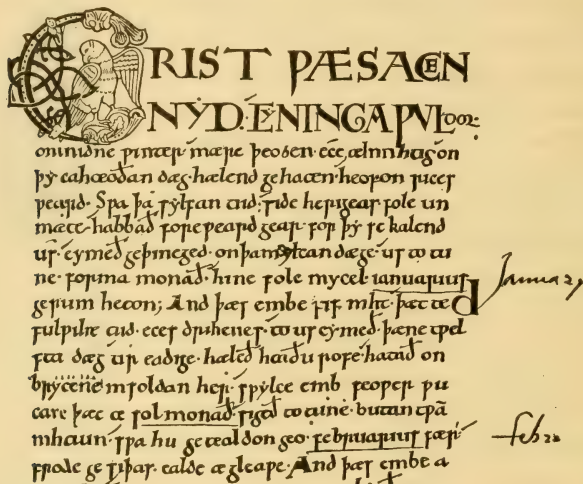 CRIST ǷÆS ACEN
NYD. CYNINGA ǷULdor.
onmidne ƿinter. mære þeoden. ece ælmihtig on
þy eahteoðan dæg. hælend gehaten. heofon rices
ƿeard. Sƿa þa sylfan tiid. side herigeas folc un
mæte. habbað foreƿeard gear. for þy se kalend
us. cymeð geþincged. onþam ylcan dæge. us to tu
ne. forma monað. hine folc mycel. ianuarius
gerum heton; And þæs embe fif niht. þætte
fulƿiht tiid. eces drihtnes. to us cymeð. þæne tƿel
fta dæg tir eadige. hæleð heaðu rofe. hatað on
brytene in foldan her. sƿylce emb feoƿer ƿu
can þætte solmonað. sigeð to tune. butan tƿā
nihtum. sƿa hit getealdon geo. februarius fær.
frode ge siþas. ealde ægleaƿe. And þæs embe a
January
feb